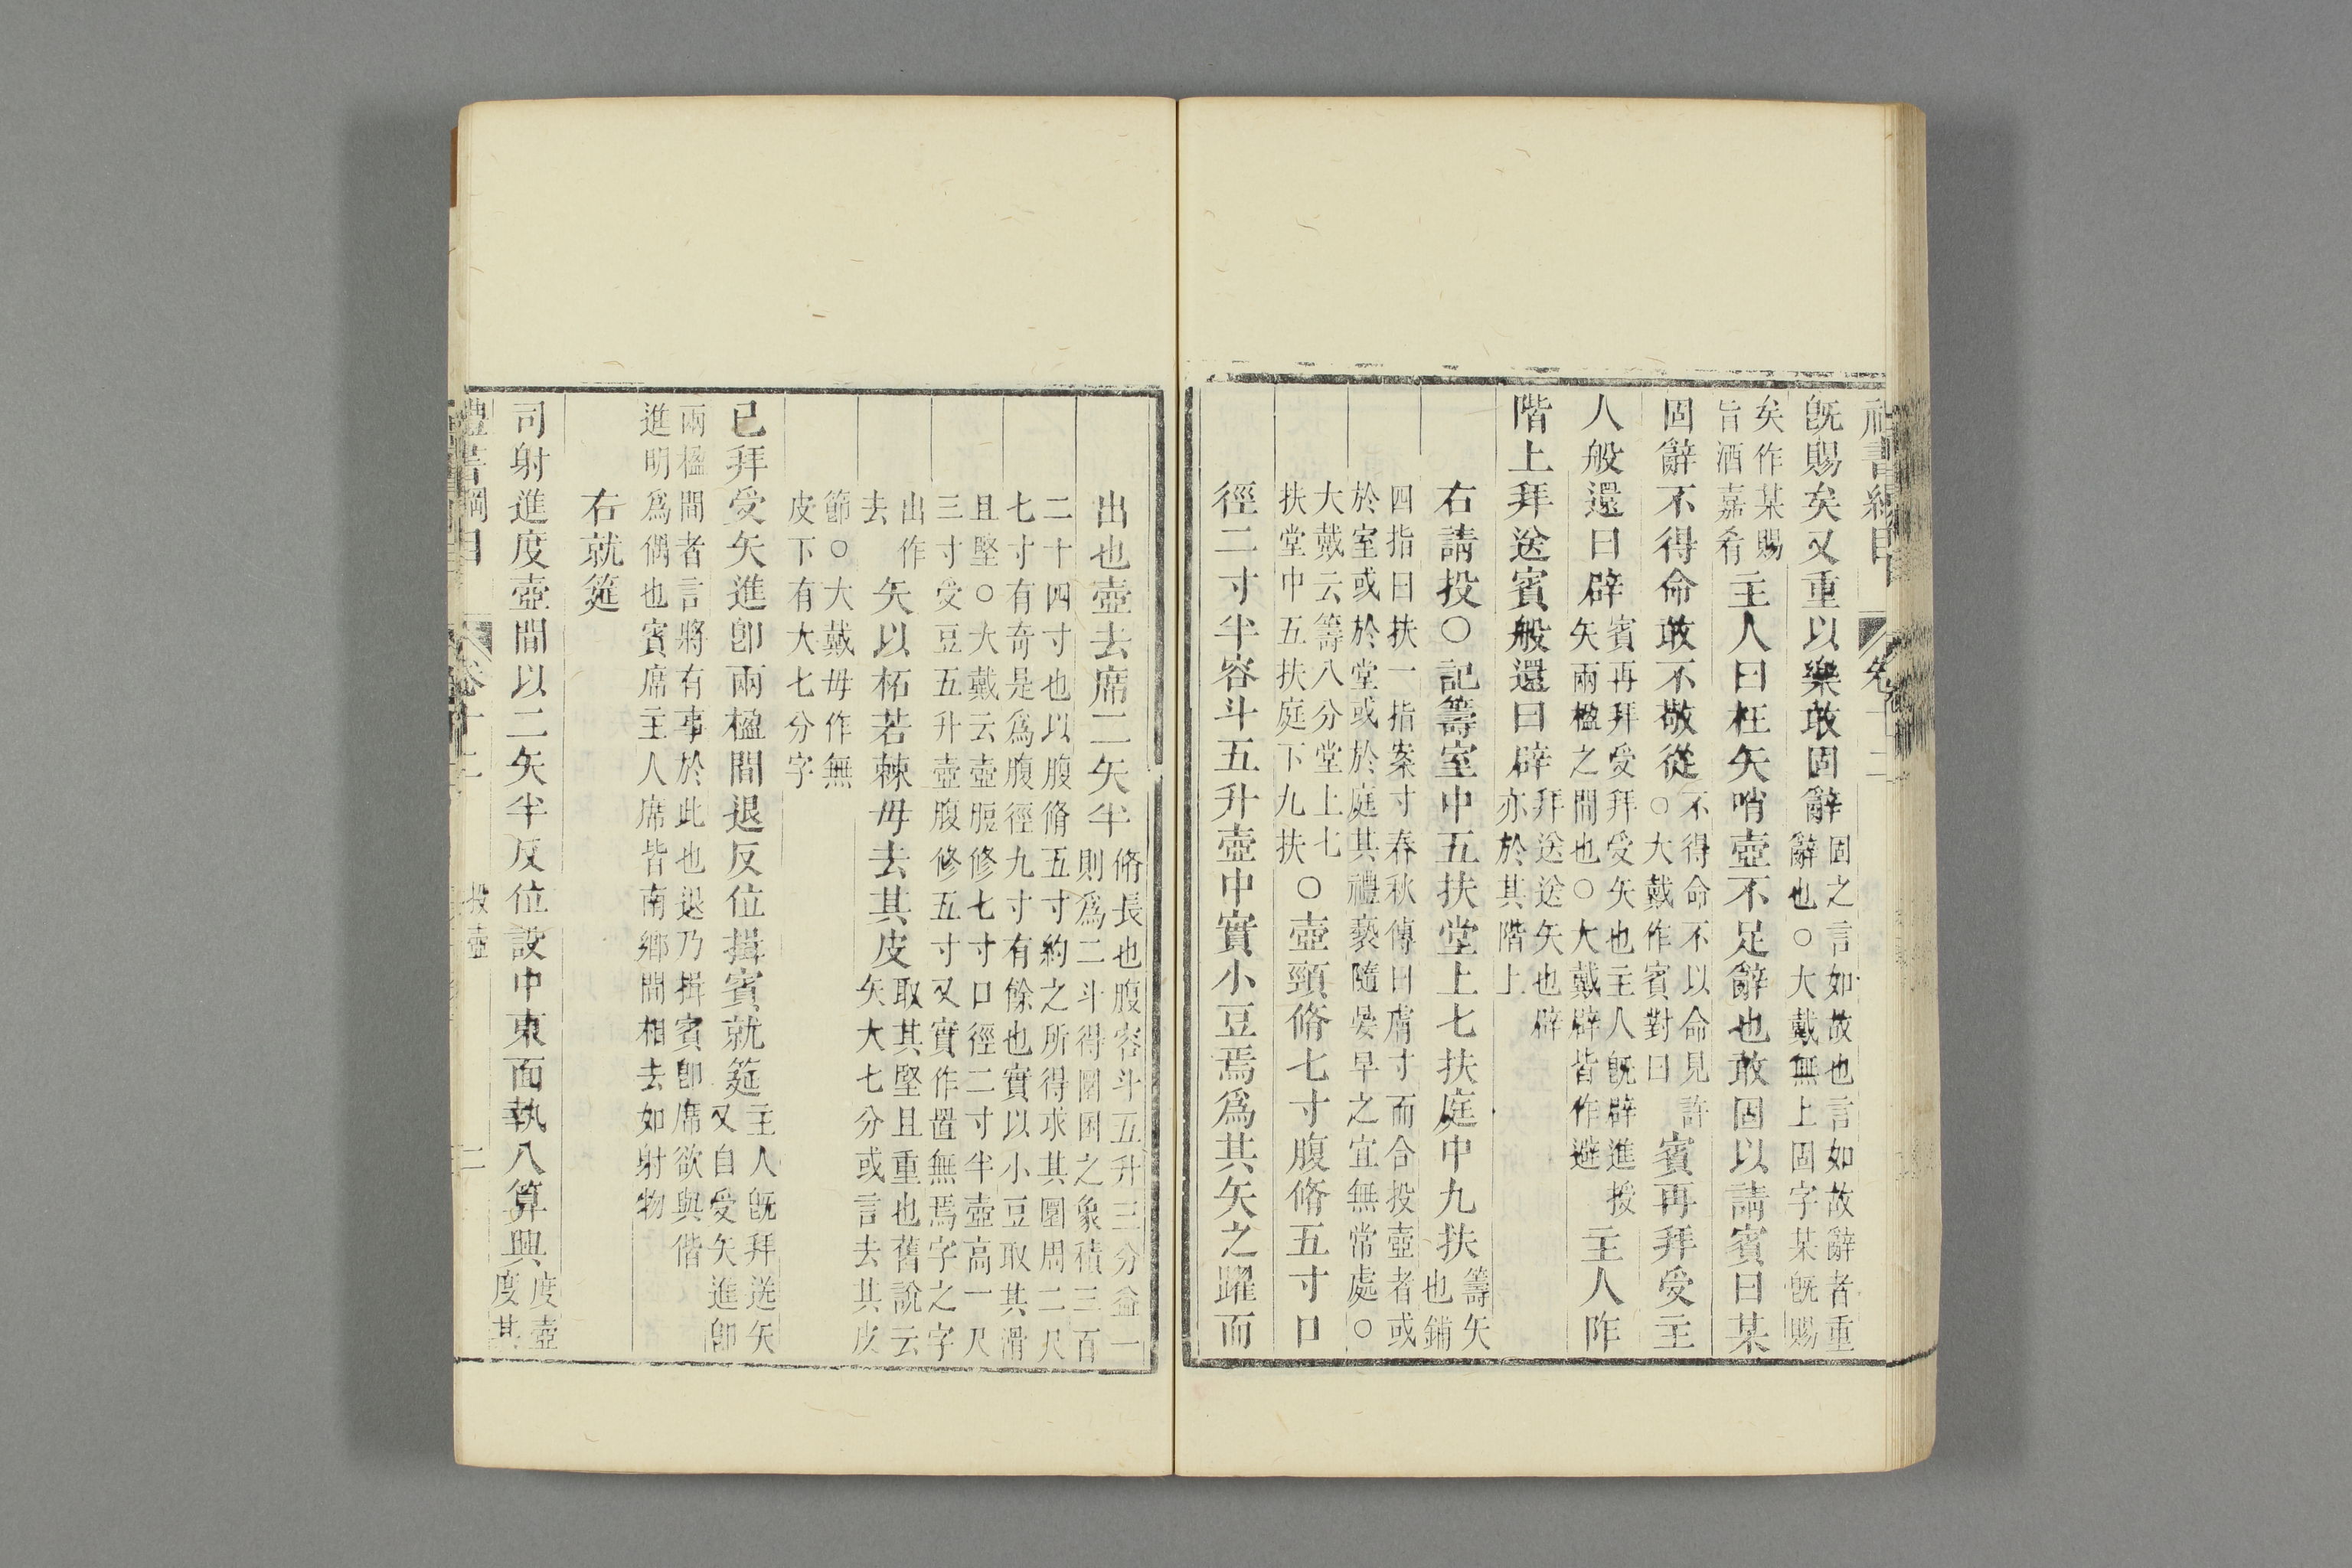 禮書綱目 卷十二
旣賜矣又重以樂敢固辭固之言如故也言如故辭者重辭也○大戴無上固字某旣賜
矣作某賜旨酒嘉肴主人曰枉矢哨壺不足辭也敢固以請賓曰某
固辭不得命敢不敬從不得命不以命見許○大戴作賓對曰賓再拜受主
人般還曰辟賓再拜受拜受矢也主人旣辟進授矢兩楹之間也○大戴辟皆作避主人阼
階上拜送賓般還曰辟拜送送矢也辟亦於其階上
右請投○記籌室中五扶堂上七扶庭中九扶籌矢也鋪
四指曰扶一指案寸春秋傳曰膚寸而合投壺者或於室或於堂或於庭其禮褻隨晏早之宜無常處○
大戴云籌八分堂上七扶堂中五扶庭下九扶○壺頸脩七寸腹脩五寸口
徑二寸半容斗五升壺中實小豆焉爲其矢之躍而
出也壺去席二矢半脩長也腹容斗五升三分益一則爲二斗得圜囷之象積三百
二十四寸也以腹脩五寸約之所得求其圜周二尺七寸有奇是爲腹徑九寸有餘也實以小豆取其滑
且堅○大戴云壺脰修七寸口徑二寸半壺高一尺三寸受豆五升壺腹修五寸又實作置無焉字之字
出作去矢以柘若棘毋去其皮取其堅且重也舊說云矢大七分或言去其皮
節○大戴毋作無皮下有大七分字
已拜受矢進卽兩楹間退反位揖賓就筵主人旣拜送矢又自受矢進卽
兩楹間者言將有事於此也退乃揖賓卽席欲與偕進明爲偶也賓席主人席皆南鄉間相去如射物
右就筵
司射進度壺間以二矢半反位設中東面執八算興度壺度其
禮書綱目 卷十二 投壺 二